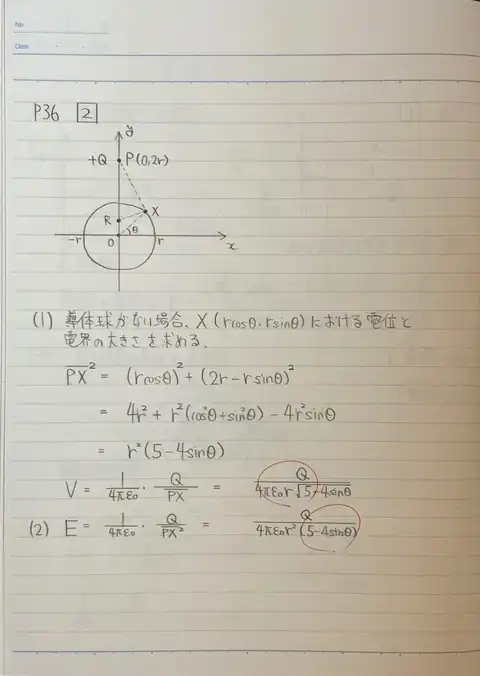 No
Date
P36 2
y
+Q P(0,2r)
X
R
θ
-r O r
x
(1) 導体球がない場合、X(rcosθ, rsinθ)における電位と
電界の大きさを求める.
PX² = (rcosθ)² + (2r-rsinθ)²
= 4r² + r²(cos²θ+sin²θ) - 4r²sinθ
= r²(5-4sinθ)
V = 1/4πε₀ · Q/PX = Q/4πε₀r√5-4sinθ
(2) E = 1/4πε₀ · Q/PX² = Q/4πε₀r²(5-4sinθ)